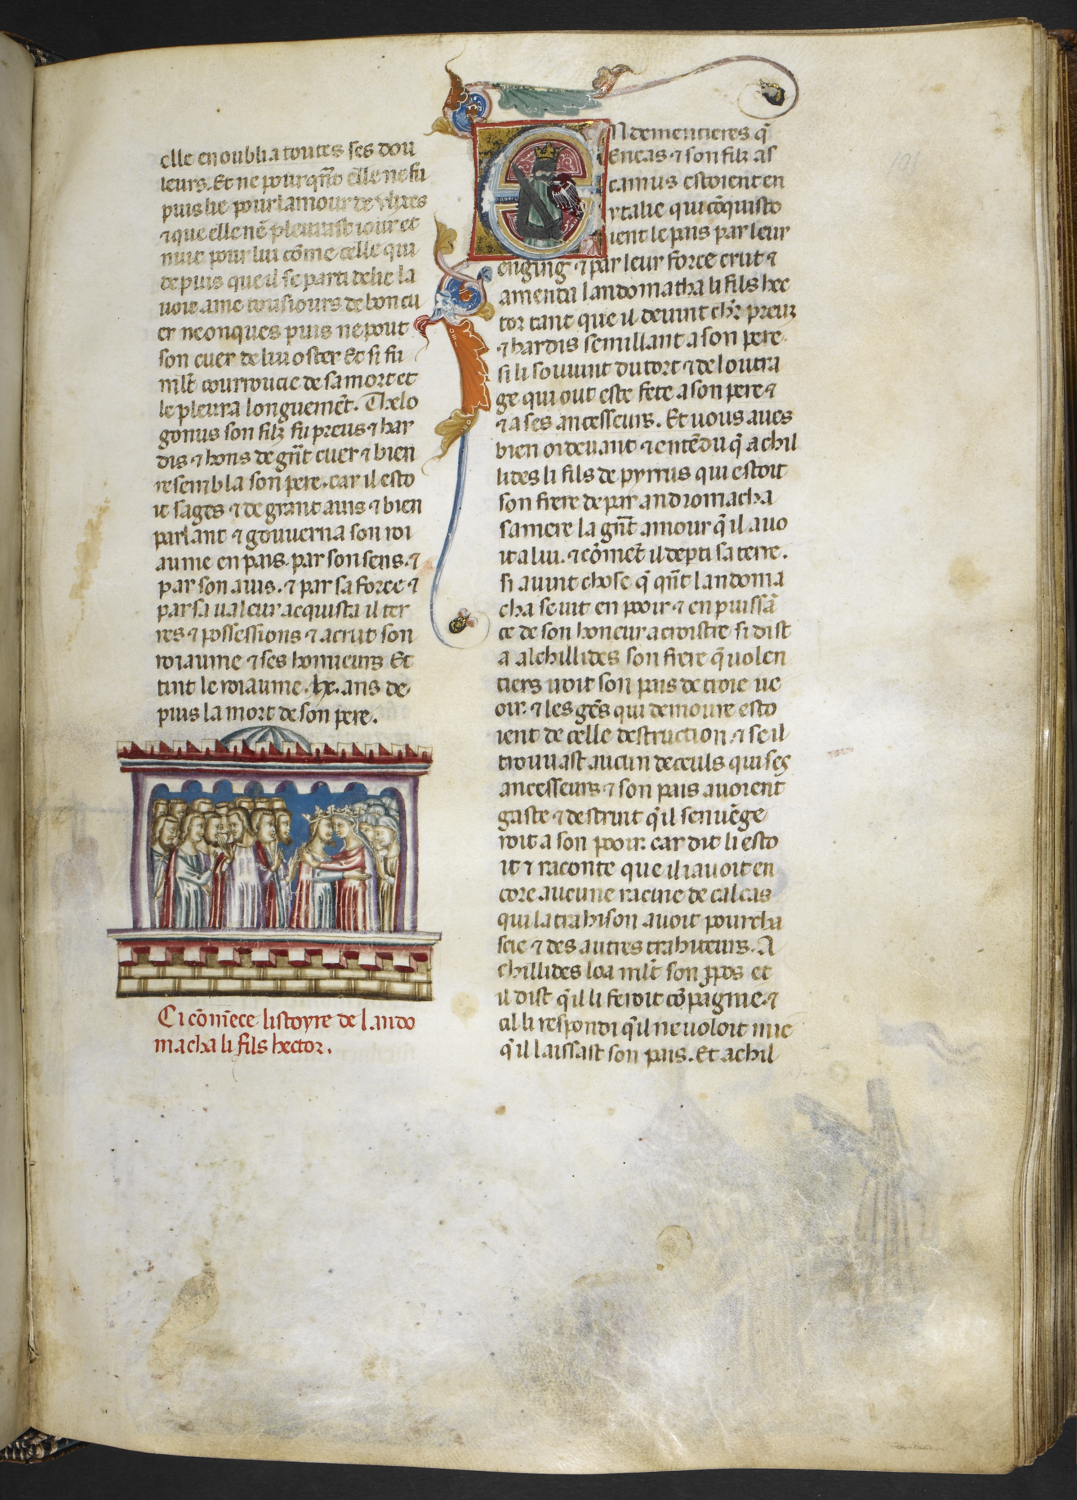 elle en oublia toutes ses dou
leurs. Et ne pourqñt elle ne fu
puis lie pour lamour de vlixes
⁊ que elle nē pleurast iour et
nuit pour lui cōme celle qui
depuis que il se parti de lie la
uoit ame tousiours de bon cu
er ne onques puis ne pout
son cuer de lui oster Et si fu
ml̃t courroucie de sa mort et
le pleura longuemēt. Thelo
gonus son filz fu preus ⁊ har
dis ⁊ bons de gñt cuer ⁊ bien
resembla son pere. car il esto
it sages ⁊ de grant auis ⁊ bien
parlant ⁊ gouuerna son roi
aume en pais. par son sens. ⁊
par son auis. ⁊ par sa force ⁊
par sa ualeur acquista il ter
res ⁊ possessions ⁊ acrut son
roiaume ⁊ ses honneurs Et
tint le roiaume .lx. ans de
puis la mort de son pere.
Ci cōmece listoyre de lando
macha li fils hector.
EN dementieres q̄
Eneas ⁊ son filz as
camus estoient en
ytalie qui cōquisto
ient le pais par leur
enging ⁊ par leur force crut ⁊
amenda landomatha li fils hec
tor tant que il deuint chr̄ preuz
⁊ hardis semillant a son pere.
si li souuint du tort ⁊ de loutra
ge qui out este fete a son pere ⁊
⁊ a ses ancesseurs. Et uous aues
bien oi deuant ⁊ entēdu q̄ achil
lides li fils de pyrrus qui estoit
son frere de par andromacha
sa mere la gñt amour q̄ il auo
it a lui. ⁊ cōmēt il depti sa terre.
si auint chose q̄ qñt landoma
cha se uit en pooir ⁊ en puissā
ce de son honeur acroistre si dist
a alchillides son frere q̄ uolen
tiers uoit son pais de troie ue
oir. ⁊ les gēs qui demoure esto
ient de celle destruction ⁊ se il
trouuast aucun de ceuls qui ses
ancesseurs ⁊ son pais auoient
gaste ⁊ destruit q̄ il sen uēge
roit a son pooir. car dit li esto
it ⁊ raconte que il i auoit en
core aucune racine de calcas
qui la trahison auoit pourcha
scie ⁊ des autres trahiteurs. A
chillides loa ml̃t son ꝓpos et
il dist q̄ il li feroit cōpagnie. ⁊
cil li respondi q̄ il ne uoloit mie
q̄ il laissast son pais. Et achil